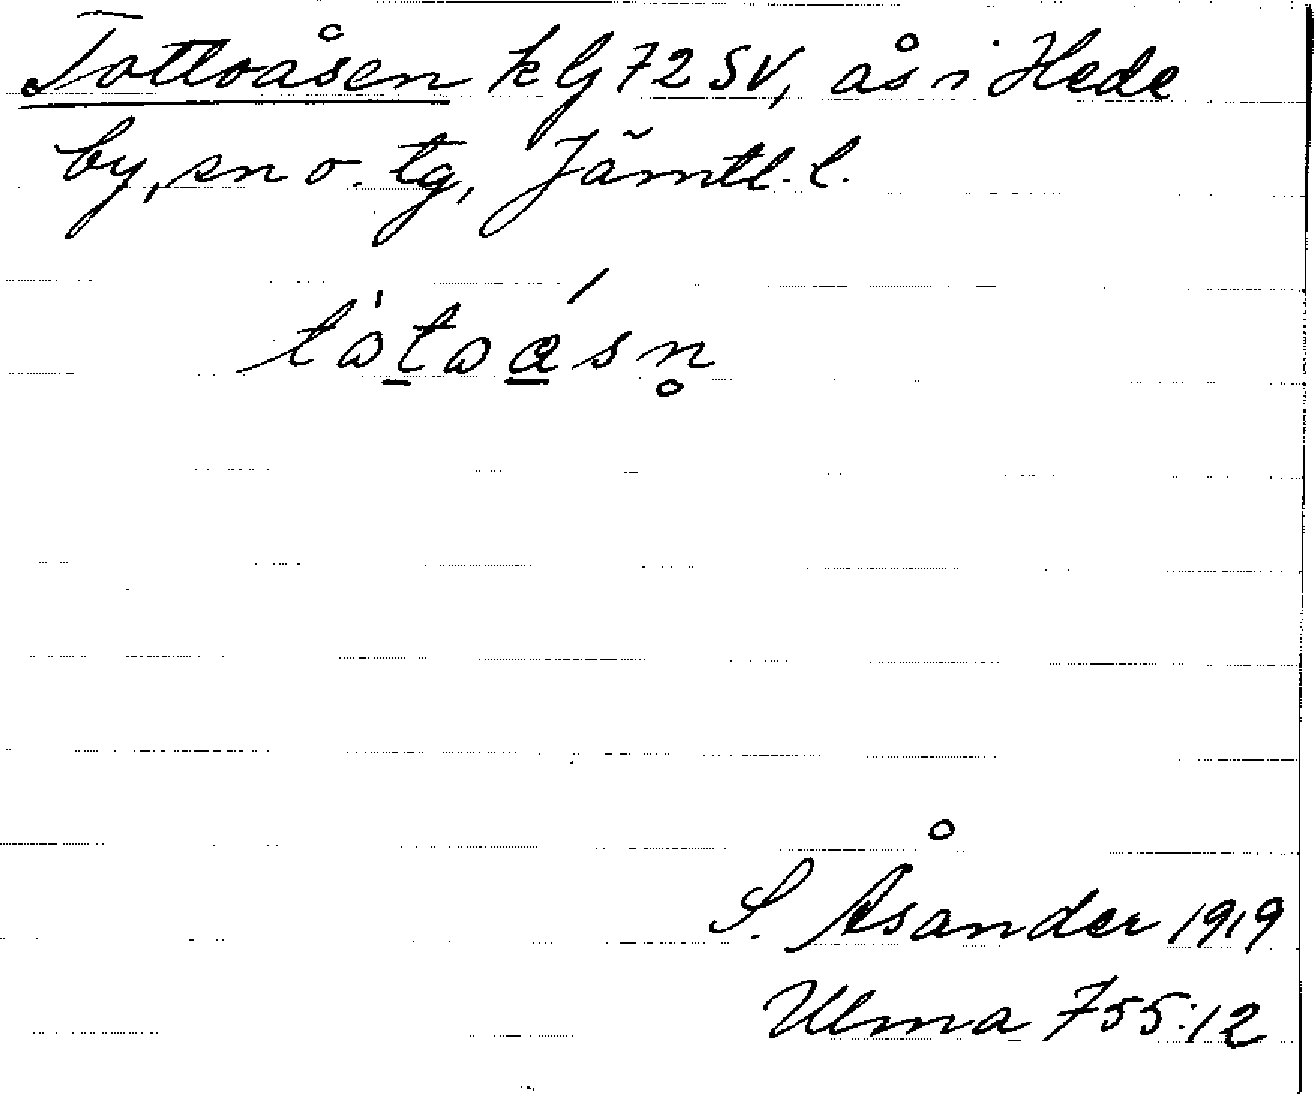 Tottoåsen k bj 72 SV, ås i Hede
by, sn o. tg, Jämtl. l.
S. Åsander 1919
Ulma 755:12